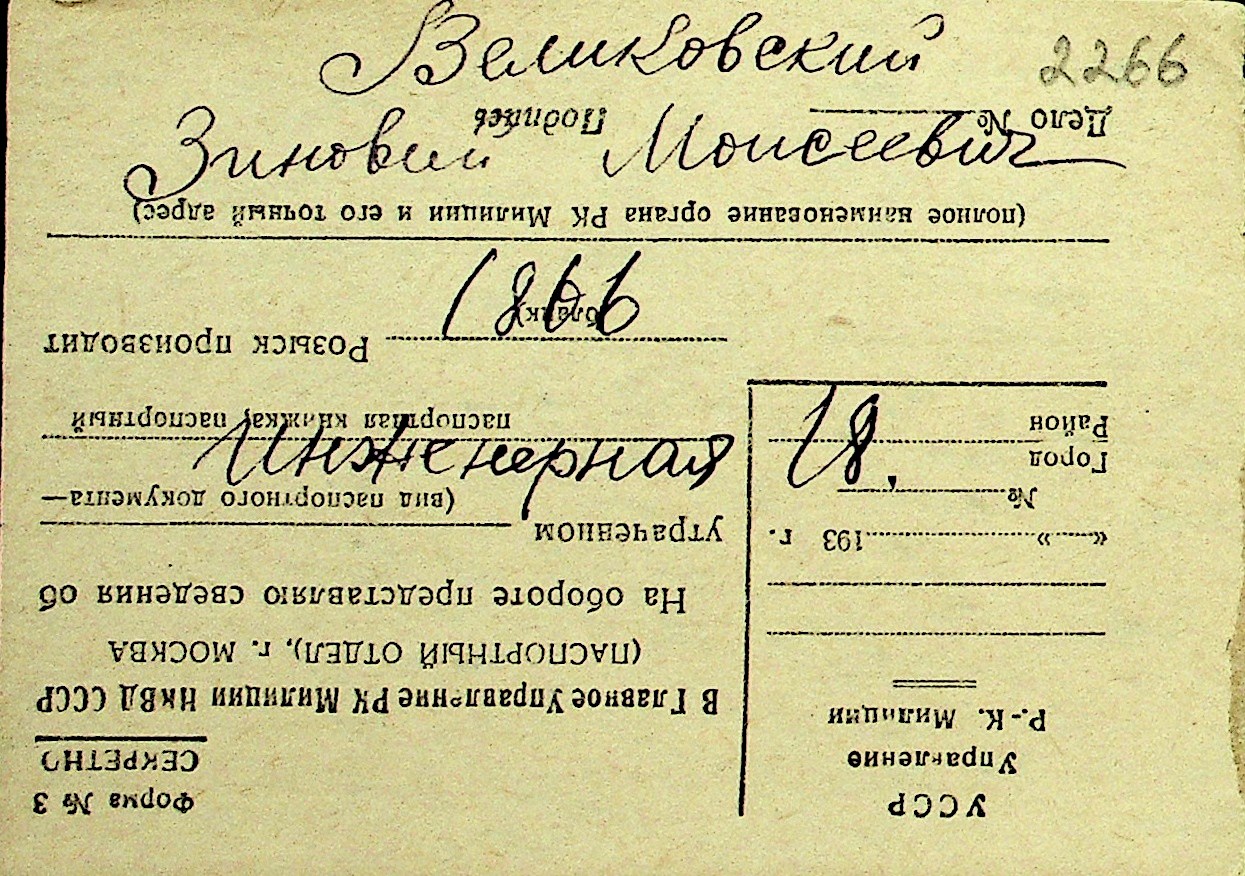 2266
Великовский
Зиновий Моисеевич
1866
Инженерная 18.
УССР
Управление
Р.-К. Милиции
« » 193 г.
№
Город
Район
Форма № 3
СЕКРЕТНО
В Главное Управление РК Милиции НКВД СССР
(ПАСПОРТНЫЙ ОТДЕЛ), г. МОСКВА
На обороте представляю сведения об
утраченном
(вид паспортного документа—
паспортная книжка, паспортный
бланк)
Розыск производит
(полное наименование органа РК Милиции и его точный адрес)
Дело № Подпись